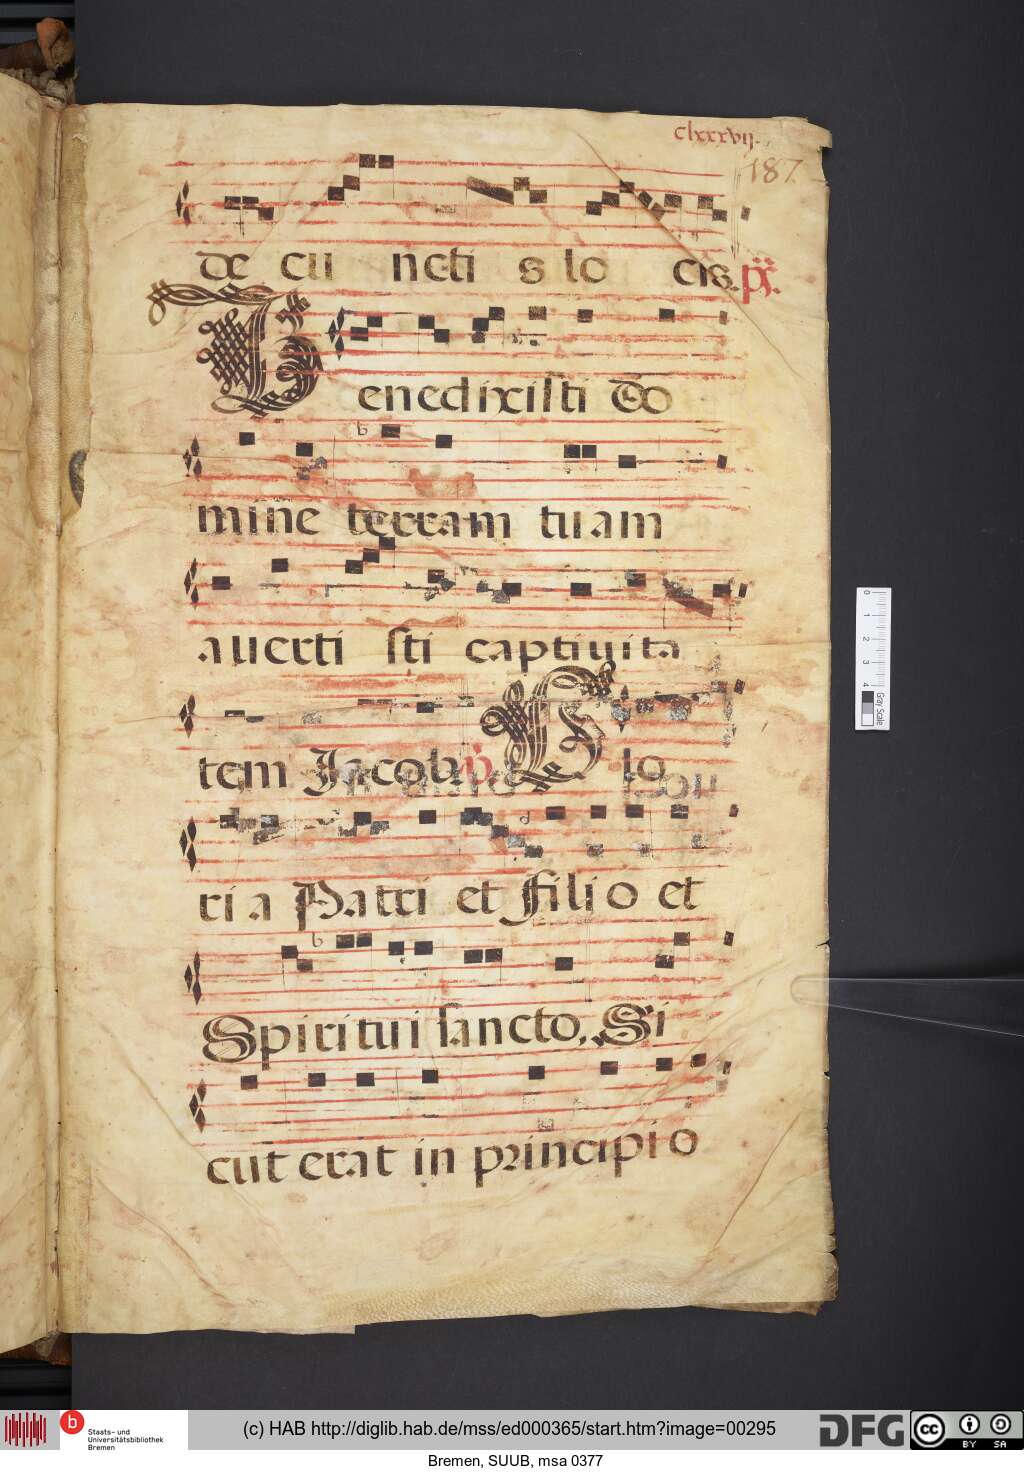 clxxxvij.
187
de cu nctis lo cis. ps.
Benedixisti do
mine terram tuam
auerti sti captiuita
tem Jacob. Glo
ria Patri et Filio et
Spiritui sancto, Si
cut erat in principio
0 1 2 3 4
Gray Scale
b Staats- und
Universitätsbibliothek
Bremen
(c) HAB http://diglib.hab.de/mss/ed000365/start.htm?image=00295
DFG
cc BY SA
Bremen, SUUB, msa 0377